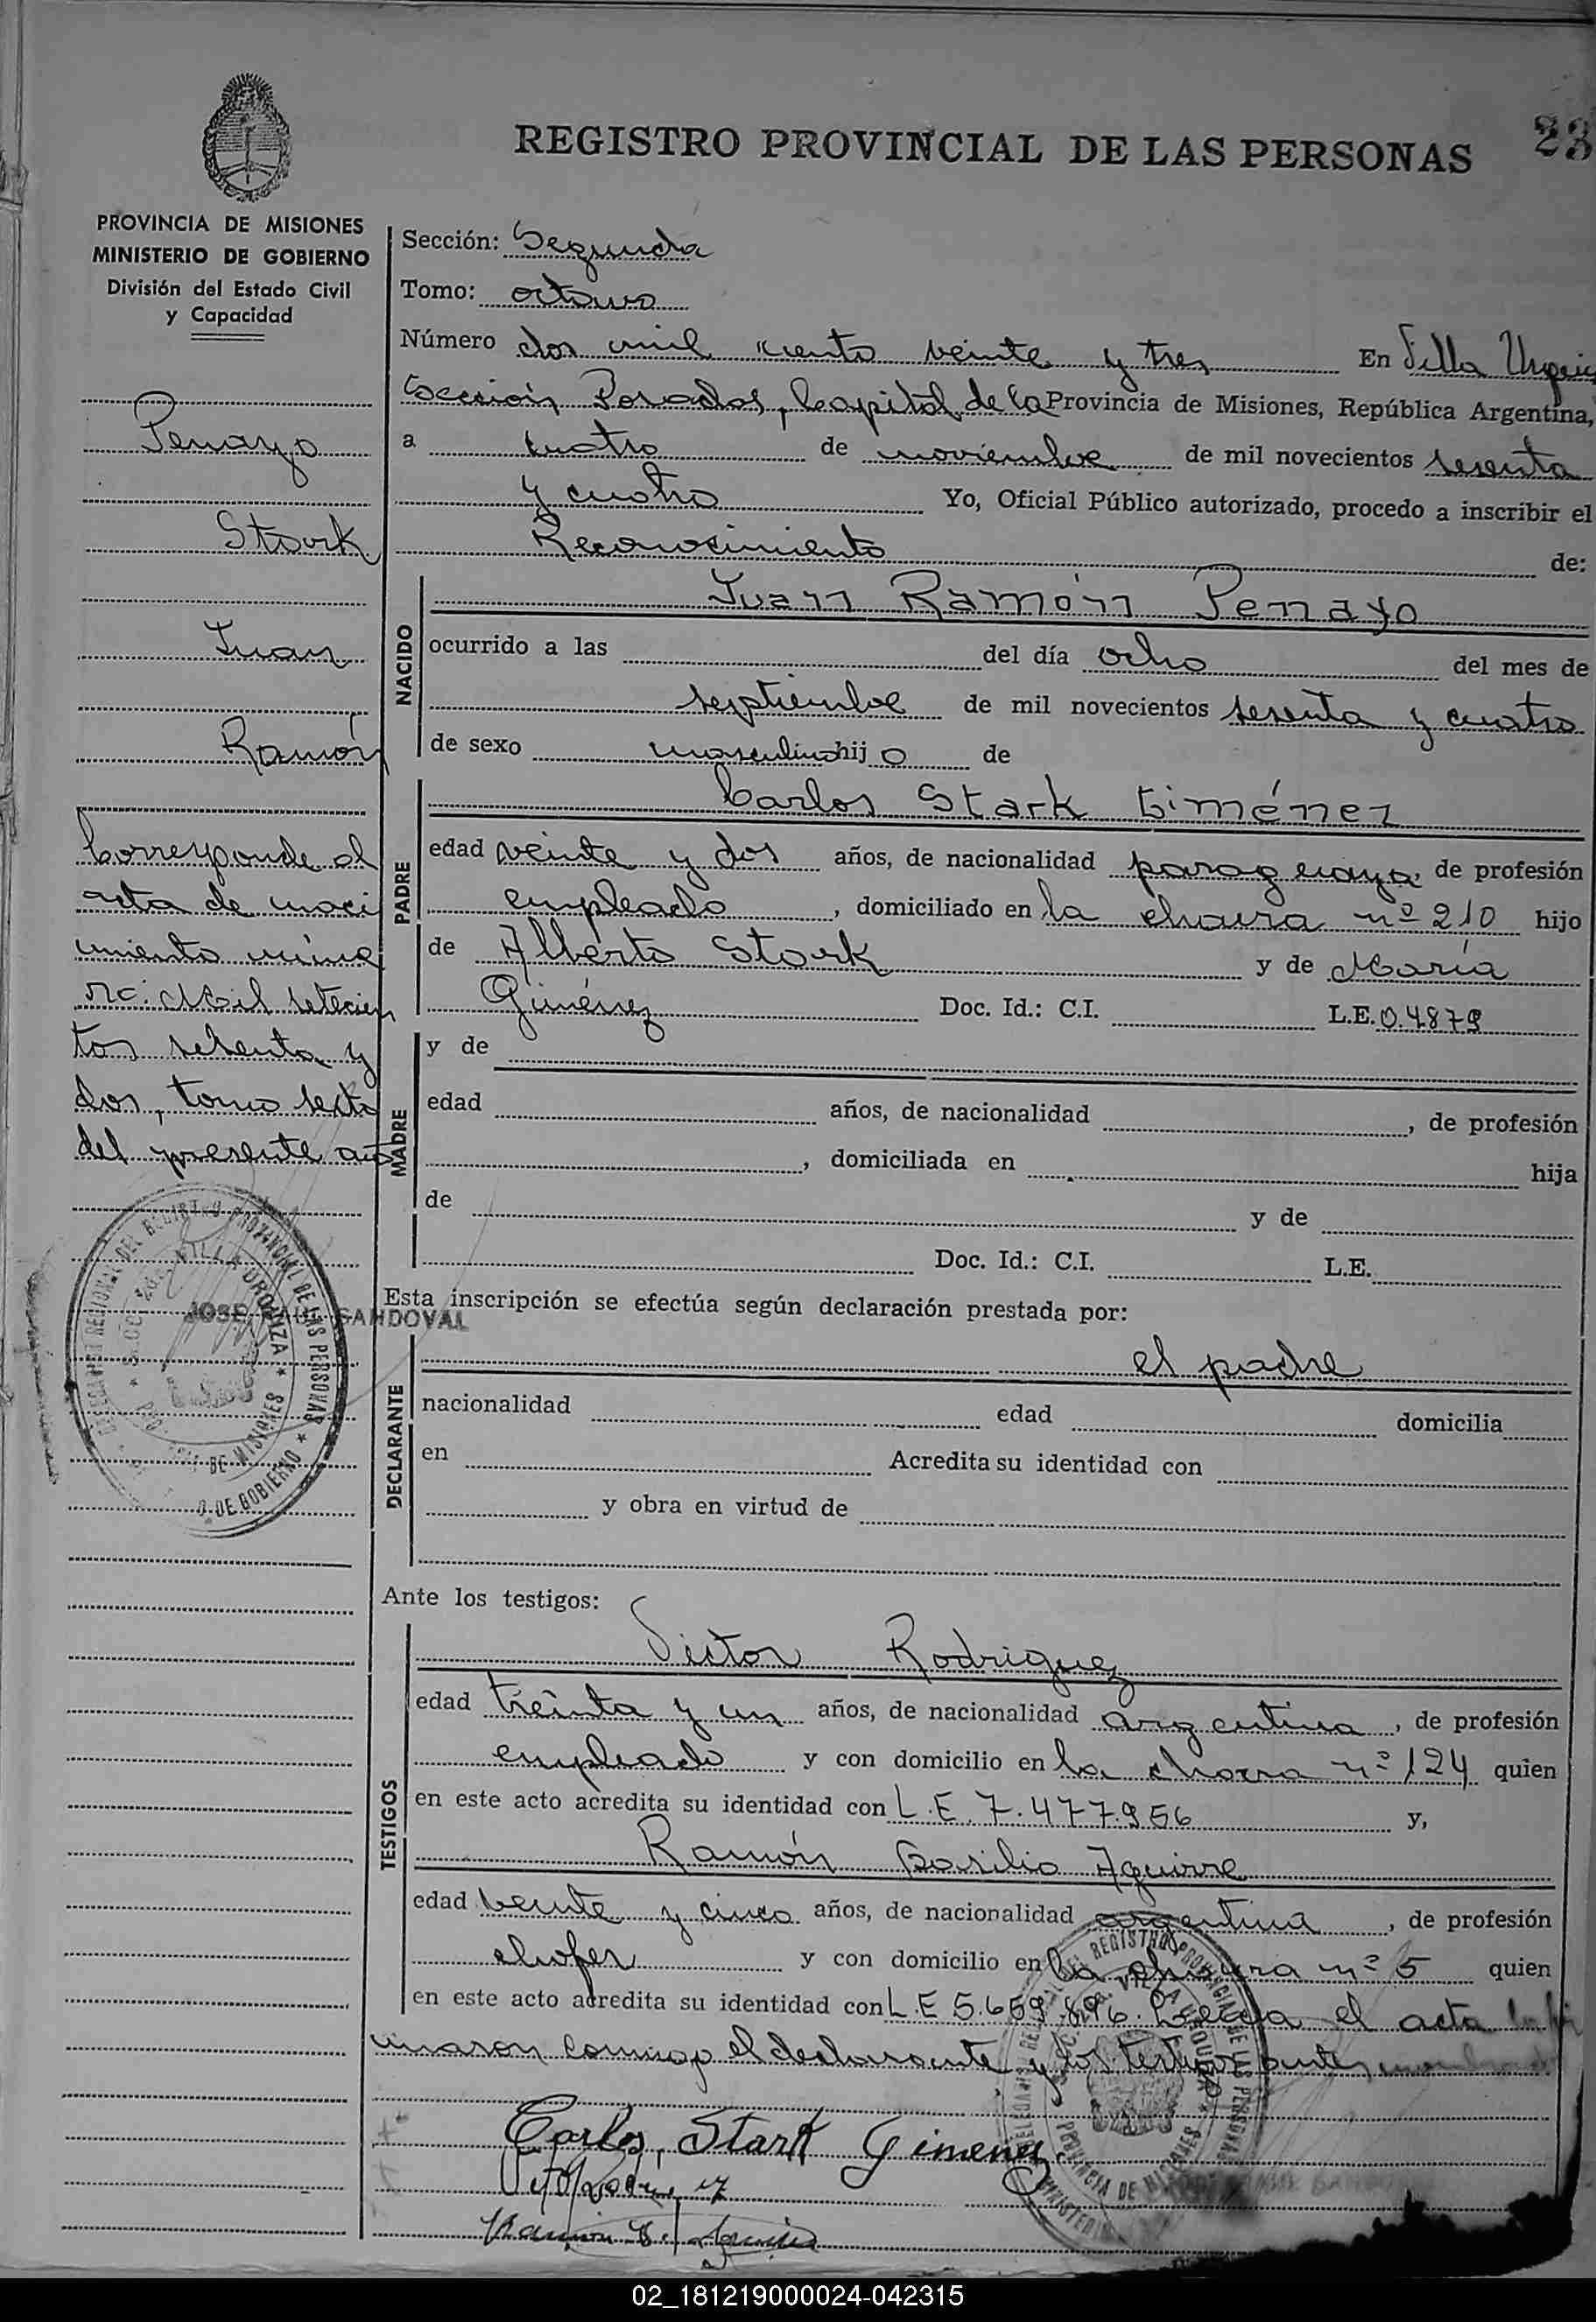 REGISTRO PROVINCIAL DE LAS PERSONAS
23
PROVINCIA DE MISIONES
MINISTERIO DE GOBIERNO
División del Estado Civil
y Capacidad
Penayo
Stark
Juan
Ramón
Corresponde al
acta de naci
miento núme
ro: Mil setecien
tos setenta y
dos, tomo sexto
del presente año
JOSE RAUL SANDOVAL
Sección: Segunda
Tomo: octavo
Número dos mil ciento veinte y tres En Villa
Sección Posadas, Capital de la Provincia de Misiones, República Argentina,
a cuatro de noviembre de mil novecientos sesenta
y cuatro Yo, Oficial Público autorizado, procedo a inscribir el
Reconocimiento de:
NACIDO
Juan Ramón Penayo
ocurrido a las del día ocho del mes de
septiembre de mil novecientos sesenta y cuatro
de sexo masculino hij o de
PADRE
Carlos Stark Giménez
edad veinte y dos años, de nacionalidad paraguaya, de profesión
empleado, domiciliado en la chacra nº 210 hijo
de Alberto Stark y de María
Giménez Doc. Id.: C.I. L.E. 0.4879
MADRE
y de
edad años, de nacionalidad , de profesión
, domiciliada en hija
de y de
Doc. Id.: C.I. L.E.
Esta inscripción se efectúa según declaración prestada por:
DECLARANTE
el padre
nacionalidad edad domicilia
en Acredita su identidad con
y obra en virtud de
Ante los testigos:
TESTIGOS
Victor Rodriguez
edad treinta y un años, de nacionalidad argentina, de profesión
empleado y con domicilio en la chacra nº 124 quien
en este acto acredita su identidad con L.E. 7.477.956 y,
Ramón Basilio Aguirre
edad veinte y cinco años, de nacionalidad argentina, de profesión
chofer y con domicilio en la chacra nº 5 quien
en este acto acredita su identidad con L.E 5.659.896. Leída el acta la fir
maron conmigo el declarante y los testigos antes
Carlos Stark Gimenez
02_181219000024-042315